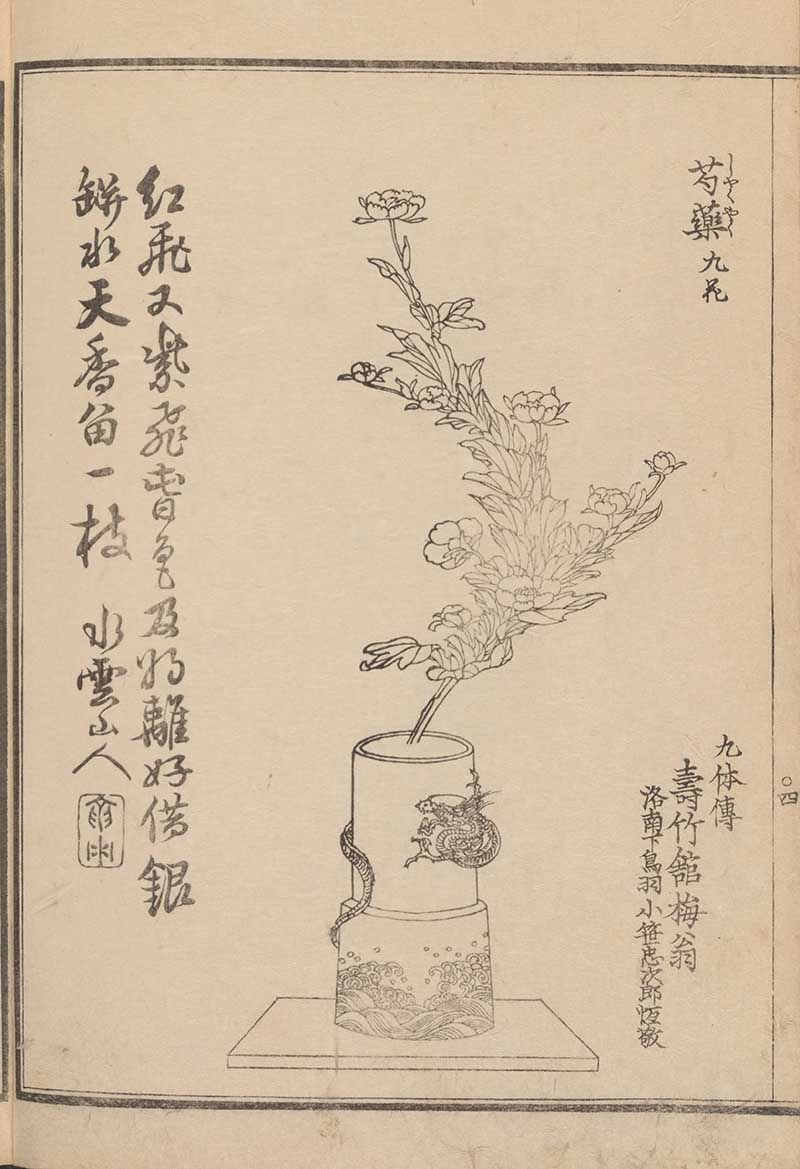 芍藥 九花
しやくやく
〇四
九体傳
壽竹舘梅翁
洛南下鳥羽 小笹忠次郎恆敬
紅飛又紫飛旾色及将離好借銀
缾水天香留一枝 水雲山人